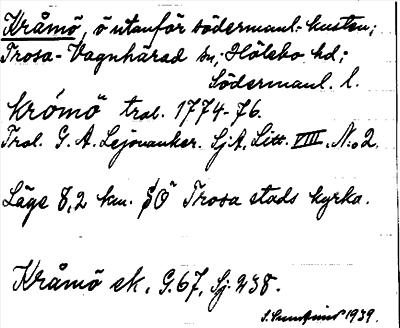 Kråmö, ö utanför södermanl. kusten;
Trosa-Vagnhärad sn; Hölebo hd;
Södermanl. l.
Krómö tral. 1774-76.
Tral. G. A. Lejonanker. SjA, Litt. VIII. N:o 2
Läge 8,2 km. SO Trosa stads kyrka.
Kråmö ek. G.67, Sj. 238.
1939.